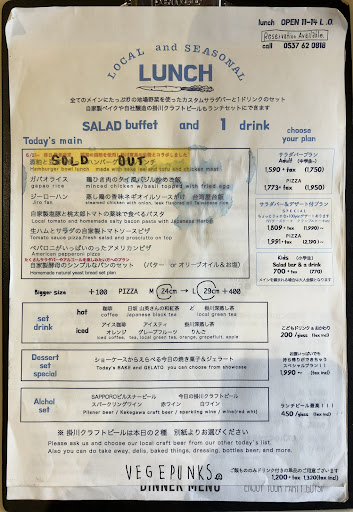 lunch OPEN 11-14 L.O.
Reservation Available
call 0537 62 0818
LOCAL and SEASONAL
LUNCH
全てのメインにたっぷりの地場野菜を使ったカスタムサラダバーと1ドリンクのセット
自家製ベイクや自社醸造の掛川クラフトビールもランチセットにできます
SALAD buffet and 1 drink
choose your plan
Today's main
SOLD OUT
Hamburger bowl lunch made with sake lees and tofu and chicken meat
ガパオライス 鶏ひき肉のタイ風バジル炒め 目玉焼き
gapao rice minced chicken w/basil topped with fried egg
ジーローハン 蒸し鶏の香味ネギソースがけ 台湾屋台飯
Jiro fan steamed chicken with onion, leek flavored
自家製塩豚と桃太郎トマトの薬味で食べるパスタ
Local tomato and homemade salty bacon pasta with Japanese herbs
生ハムとサラダの自家製トマトソースピザ
Tomato sauce pizza fresh salad and prosciutto on top
ペパロニがいっぱいのったアメリカンピザ
American pepperoni pizza
自家製酵母のシンプルなパンのセット (バター or オリーブオイル&お塩)
Homemade natural yeast bread set plan
サラダバープラン
Adult (中学生~)
1,590 +tax (1,750)
PIZZA
1,773+tax (1,950)
サラダバー&デザート付プラン
1,809 +tax (1,990)
PIZZA
1,991+tax (2,190~)
Kids (小学生)
Salad bar & a drink
700 +tax (770)
Bigger Size +100 PIZZA M 24cm → L 29cm +400
set drink
hot 珈琲 or 山英さんの和紅茶 ど 掛川深蒸し茶
coffee Japanese black tea local green tea
iced アイス珈琲 アイスティ 掛川深蒸し茶
オレンジ グレープフルーツ りんご
iced coffee, tea, local green tea, orange, grapefruit, apple
こどもドリンク&おかわり
200 /glass (tax incl)
Dessert set special
ショーケースからえらべる今日の焼き菓子&ジェラート
Today's BAKE and GELATO you can choose from showcase
お腹いっぱいでも
持ち帰りができちゃう
スペシャルプラン!
1,990~ // (tax incl)
Alchol set
SAPPOROピルスナービール 今日の掛川クラフトビール
スパークリングワイン 赤ワイン 白ワイン
Pilsner beer / Kakegawa craft beer / sparkling wine / wine(red wht)
ランチビール最高!!!
450 /glass (tax incl)
※ 掛川クラフトビールは本日の2種 別紙よりお選びください
Please ask us and choose our local craft beer from our other today's list.
Also you can do take away, delis, baked things, dressing, bottles beer, and more.
VEGEPUNKS.
1,200+tax 1,320(tax incl)
DINNER MENU